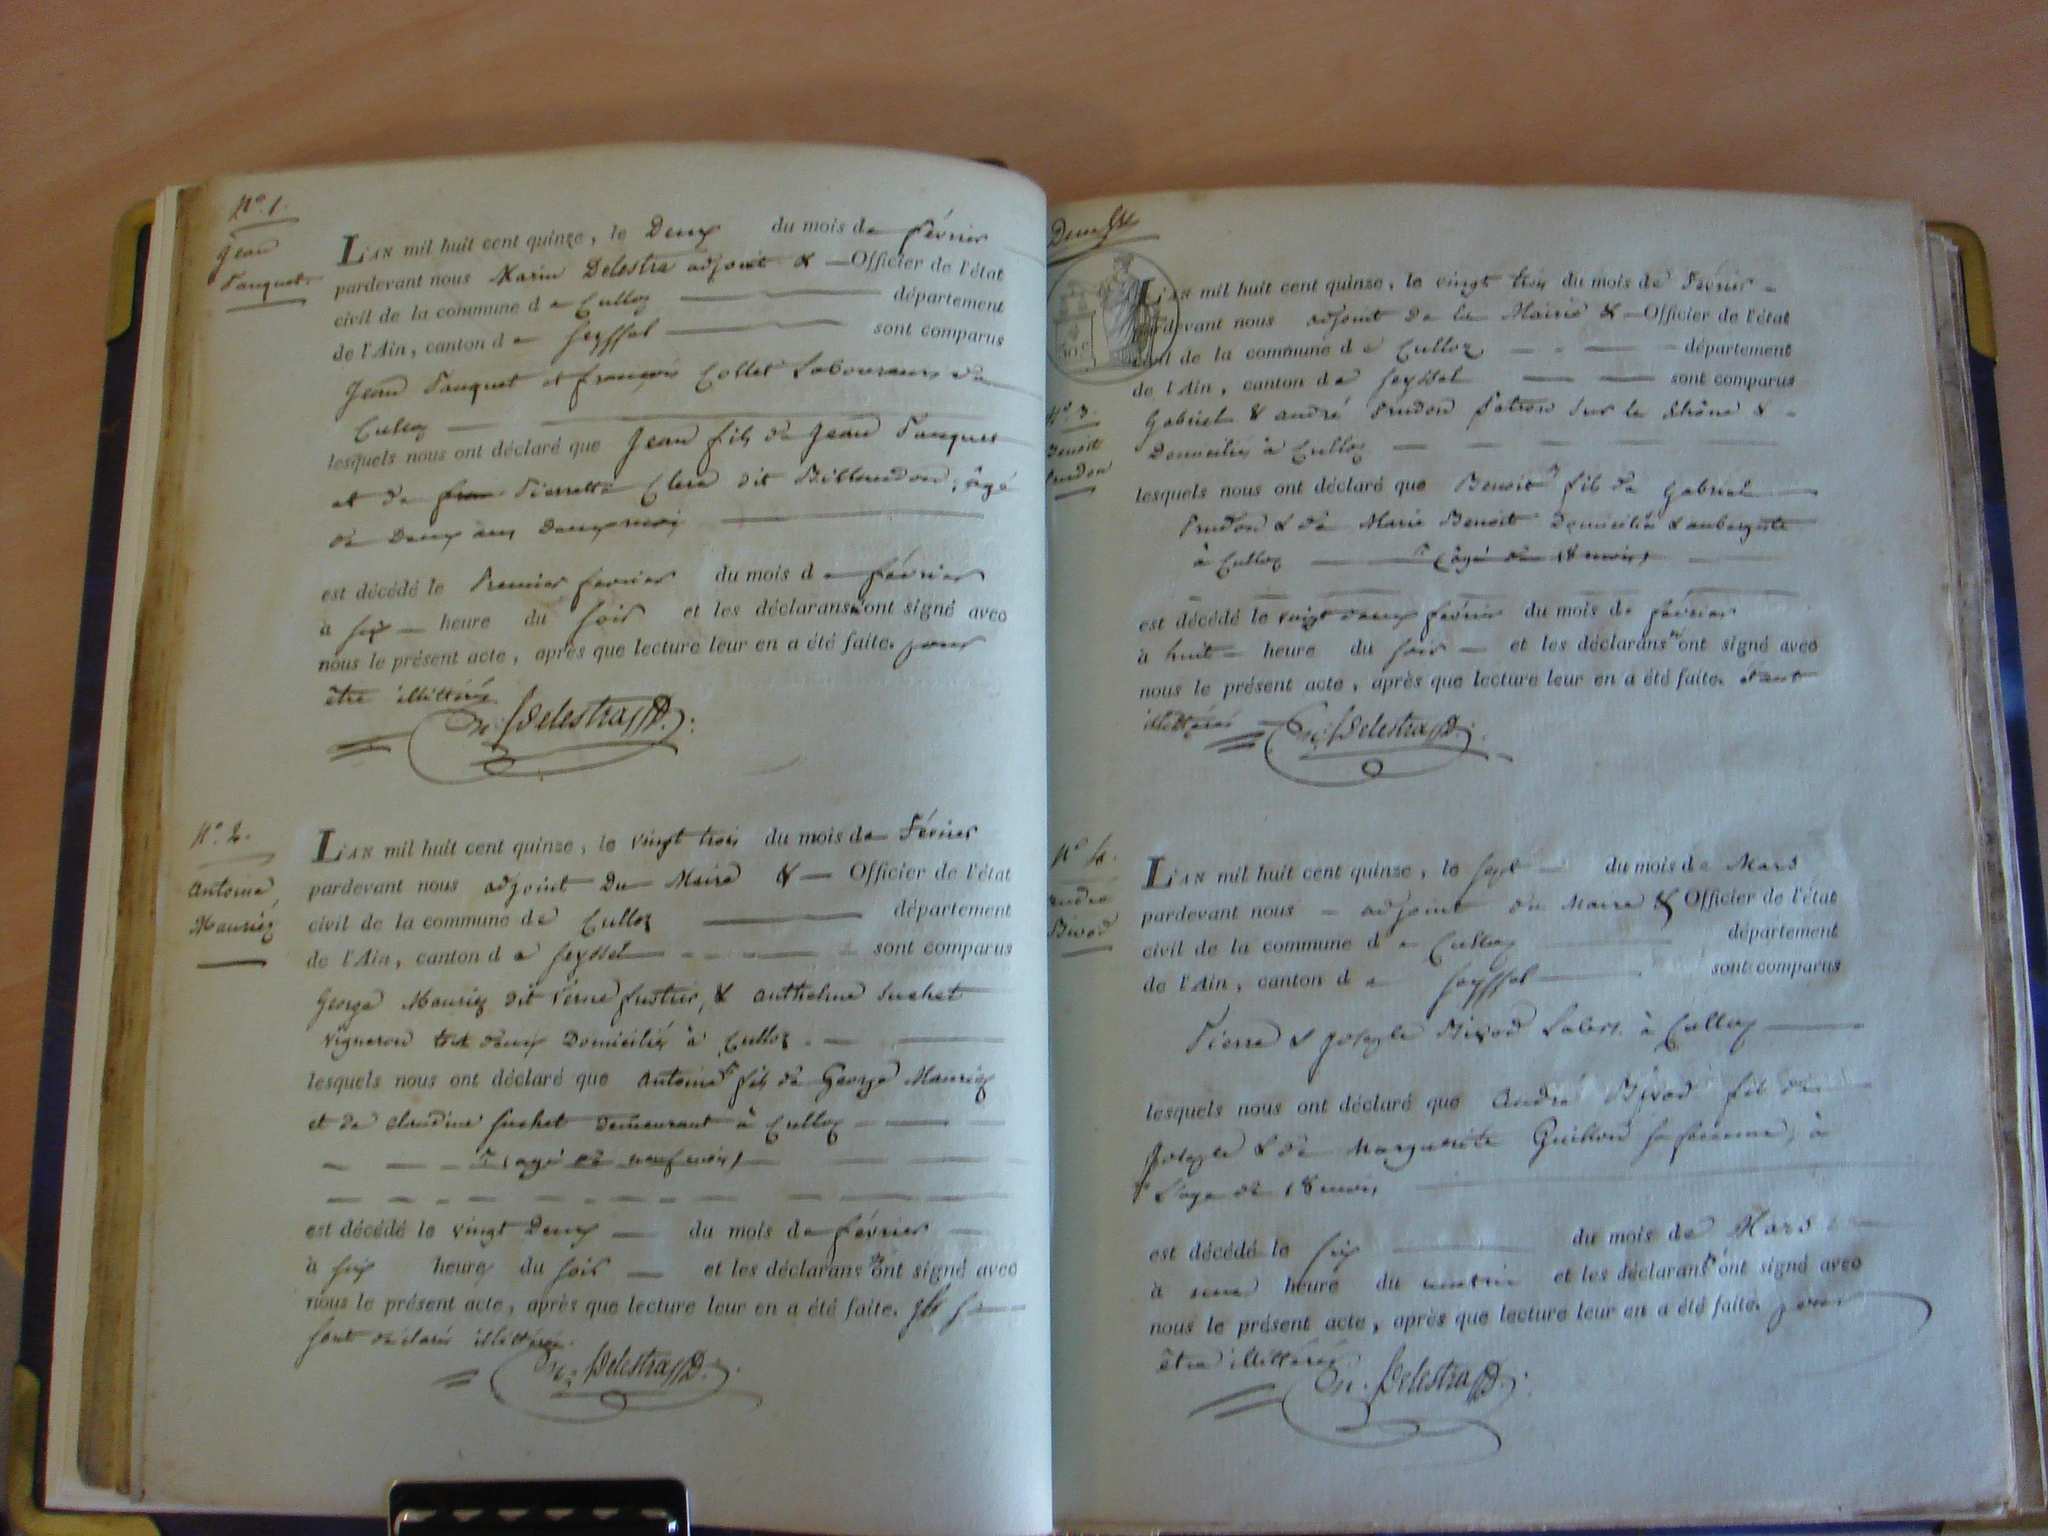 N.º 1.
Jean
Tanquet.
L'AN mil huit cent quinze, le Deux du mois de février
pardevant nous Marin Delestra adjoint & Officier de l'état
civil de la commune de Culloz département
de l'Ain, canton de Seyssel sont comparus
Jean Tanquet et françois Collet Laboureurs de
Culloz
lesquels nous ont déclaré que Jean fils de Jean Tanquet
et de Pierrette Clerc dit Billoudon, âgé
de Deux ans Deux mois
est décédé le Premier fevrier du mois de février
à six heure du soir et les déclarans n'ont signé avec
nous le présent acte, après que lecture leur en a été faite. pour
être illittérés
M. Delestra
N.º 2.
Antoine
Mauriez
L'AN mil huit cent quinze, le vingt trois du mois de Février
pardevant nous adjoint Du Maire & Officier de l'état
civil de la commune de Culloz département
de l'Ain, canton de Seyssel sont comparus
George Mauriez dit Verne fustier, & Anthelme Suchet
vigneron tot deux Domiciliés à Culloz
lesquels nous ont déclaré que Antoine fils de George Mauriez
et de Claudine Suchet demeurant à Culloz
(agé de neuf mois)
est décédé le vingt Deux du mois de février
à six heures du soir et les déclarans n'ont signé avec
nous le présent acte, après que lecture leur en a été faite. ils se
sont déclarés illittérés.
M. Delestra
L'AN mil huit cent quinze, le vingt trois du mois de Février
pardevant nous adjoint de la Mairie & Officier de l'état
civil de la commune de Culloz département
de l'Ain, canton de Seyssel sont comparus
N.º 3.
Benoit
Prudon
Gabriel & André Prudon Patron sur le Rhône &
Domiciliés à Culloz
lesquels nous ont déclaré que Benoit fils de Gabriel
Prudon & de Marie Benoit domiciliés & aubergiste
à Culloz (âgé de 18 mois)
est décédé le vingt deux fevrier du mois de février
à huit heure du soir et les déclarans n'ont signé avec
nous le présent acte, après que lecture leur en a été faite. Tant
illittérés
M. Delestra
N.º 4.
André
Bivod
L'AN mil huit cent quinze, le sept du mois de Mars
pardevant nous adjoint du Maire & Officier de l'état
civil de la commune de Culloz département
de l'Ain, canton de Seyssel sont comparus
Pierre & Joseph Bivod Labrs. à Culloz
lesquels nous ont déclaré que André Bivod fils de
Joseph & de Marguerite Guillon sa femme, à
L'age de 18 mois
est décédé le six du mois de Mars
à une heure du matin et les déclarans n'ont signé avec
nous le présent acte, après que lecture leur en a été faite. pour
être illittérés
M. Delestra